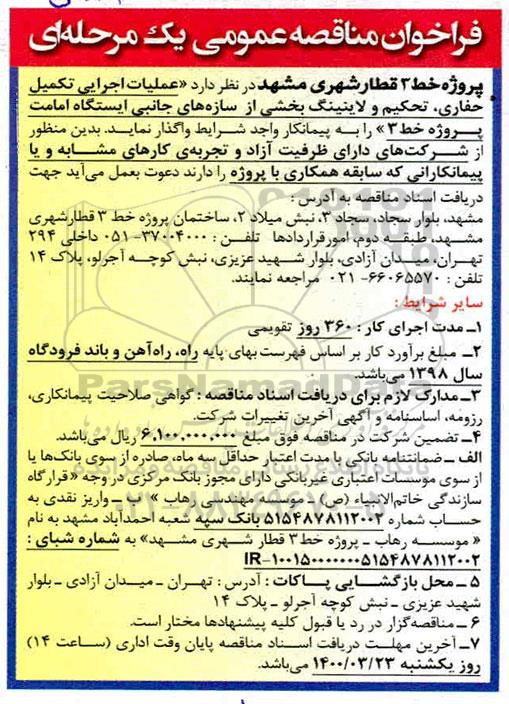 فراخوان مناقصه عمومی یک مرحله‌ای
پروژه خط ۳ قطار شهری مشهد در نظر دارد «عملیات اجرایی تکمیل
حفاری، تحکیم و لاینینگ بخشی از سازه‌های جانبی ایستگاه امامت
پروژه خط ۳» را به پیمانکار واجد شرایط واگذار نماید. بدین منظور
از شرکت‌های دارای ظرفیت آزاد و تجربه‌ی کارهای مشابه و یا
پیمانکارانی که سابقه همکاری با پروژه را دارند دعوت بعمل می‌آید جهت
دریافت اسناد مناقصه به آدرس :
مشهد، بلوار سجاد، سجاد ۳، نبش میلاد ۲، ساختمان پروژه خط ۳ قطارشهری
مشهد، طبقه دوم، امورقراردادها تلفن : ۳۷۰۰۴۰۰۰-۰۵۱ داخلی ۲۹۴
تهران، میدان آزادی، بلوار شهید عزیزی، نبش کوچه آجرلو، پلاک ۱۴
تلفن : ۶۶۰۶۵۵۷۰-۰۲۱ مراجعه نمایند.
سایر شرایط :
۱ـ مدت اجرای کار : ۳۶۰ روز تقویمی
۲ـ مبلغ برآورد کار بر اساس فهرست بهای پایه راه، راه‌آهن و باند فرودگاه
سال ۱۳۹۸ می‌باشد.
۳ـ مدارک لازم برای دریافت اسناد مناقصه : گواهی صلاحیت پیمانکاری،
رزومه، اساسنامه و آگهی آخرین تغییرات شرکت.
۴ـ تضمین شرکت در مناقصه فوق مبلغ ۶,۱۰۰,۰۰۰,۰۰۰ ریال می‌باشد.
الف ـ ضمانتنامه بانکی با مدت اعتبار حداقل سه ماه، صادره از سوی بانک‌ها یا
از سوی موسسات اعتباری غیربانکی دارای مجوز بانک مرکزی در وجه «قرارگاه
سازندگی خاتم‌الانبیاء (ص) ـ موسسه مهندسی رهاب» یا ب ـ واریز نقدی به
حساب شماره ۵۱۵۴۸۷۸۱۱۲۰۰۲ بانک سپه شعبه احمدآباد مشهد به نام
«موسسه رهاب ـ پروژه خط ۳ قطار شهری مشهد» به شماره شبای :
IR-۱۰۰۱۵۰۰۰۰۰۰۰۵۱۵۴۸۷۸۱۱۲۰۰۲
۵ ـ محل بازگشایی پاکات : آدرس : تهران ـ میدان آزادی ـ بلوار
شهید عزیزی ـ نبش کوچه آجرلو ـ پلاک ۱۴
۶ ـ مناقصه‌گزار در رد یا قبول کلیه پیشنهادها مختار است.
۷ـ آخرین مهلت دریافت اسناد مناقصه پایان وقت اداری (ساعت ۱۴)
روز یکشنبه ۱۴۰۰/۰۳/۲۳ می‌باشد.
ParsNamadData